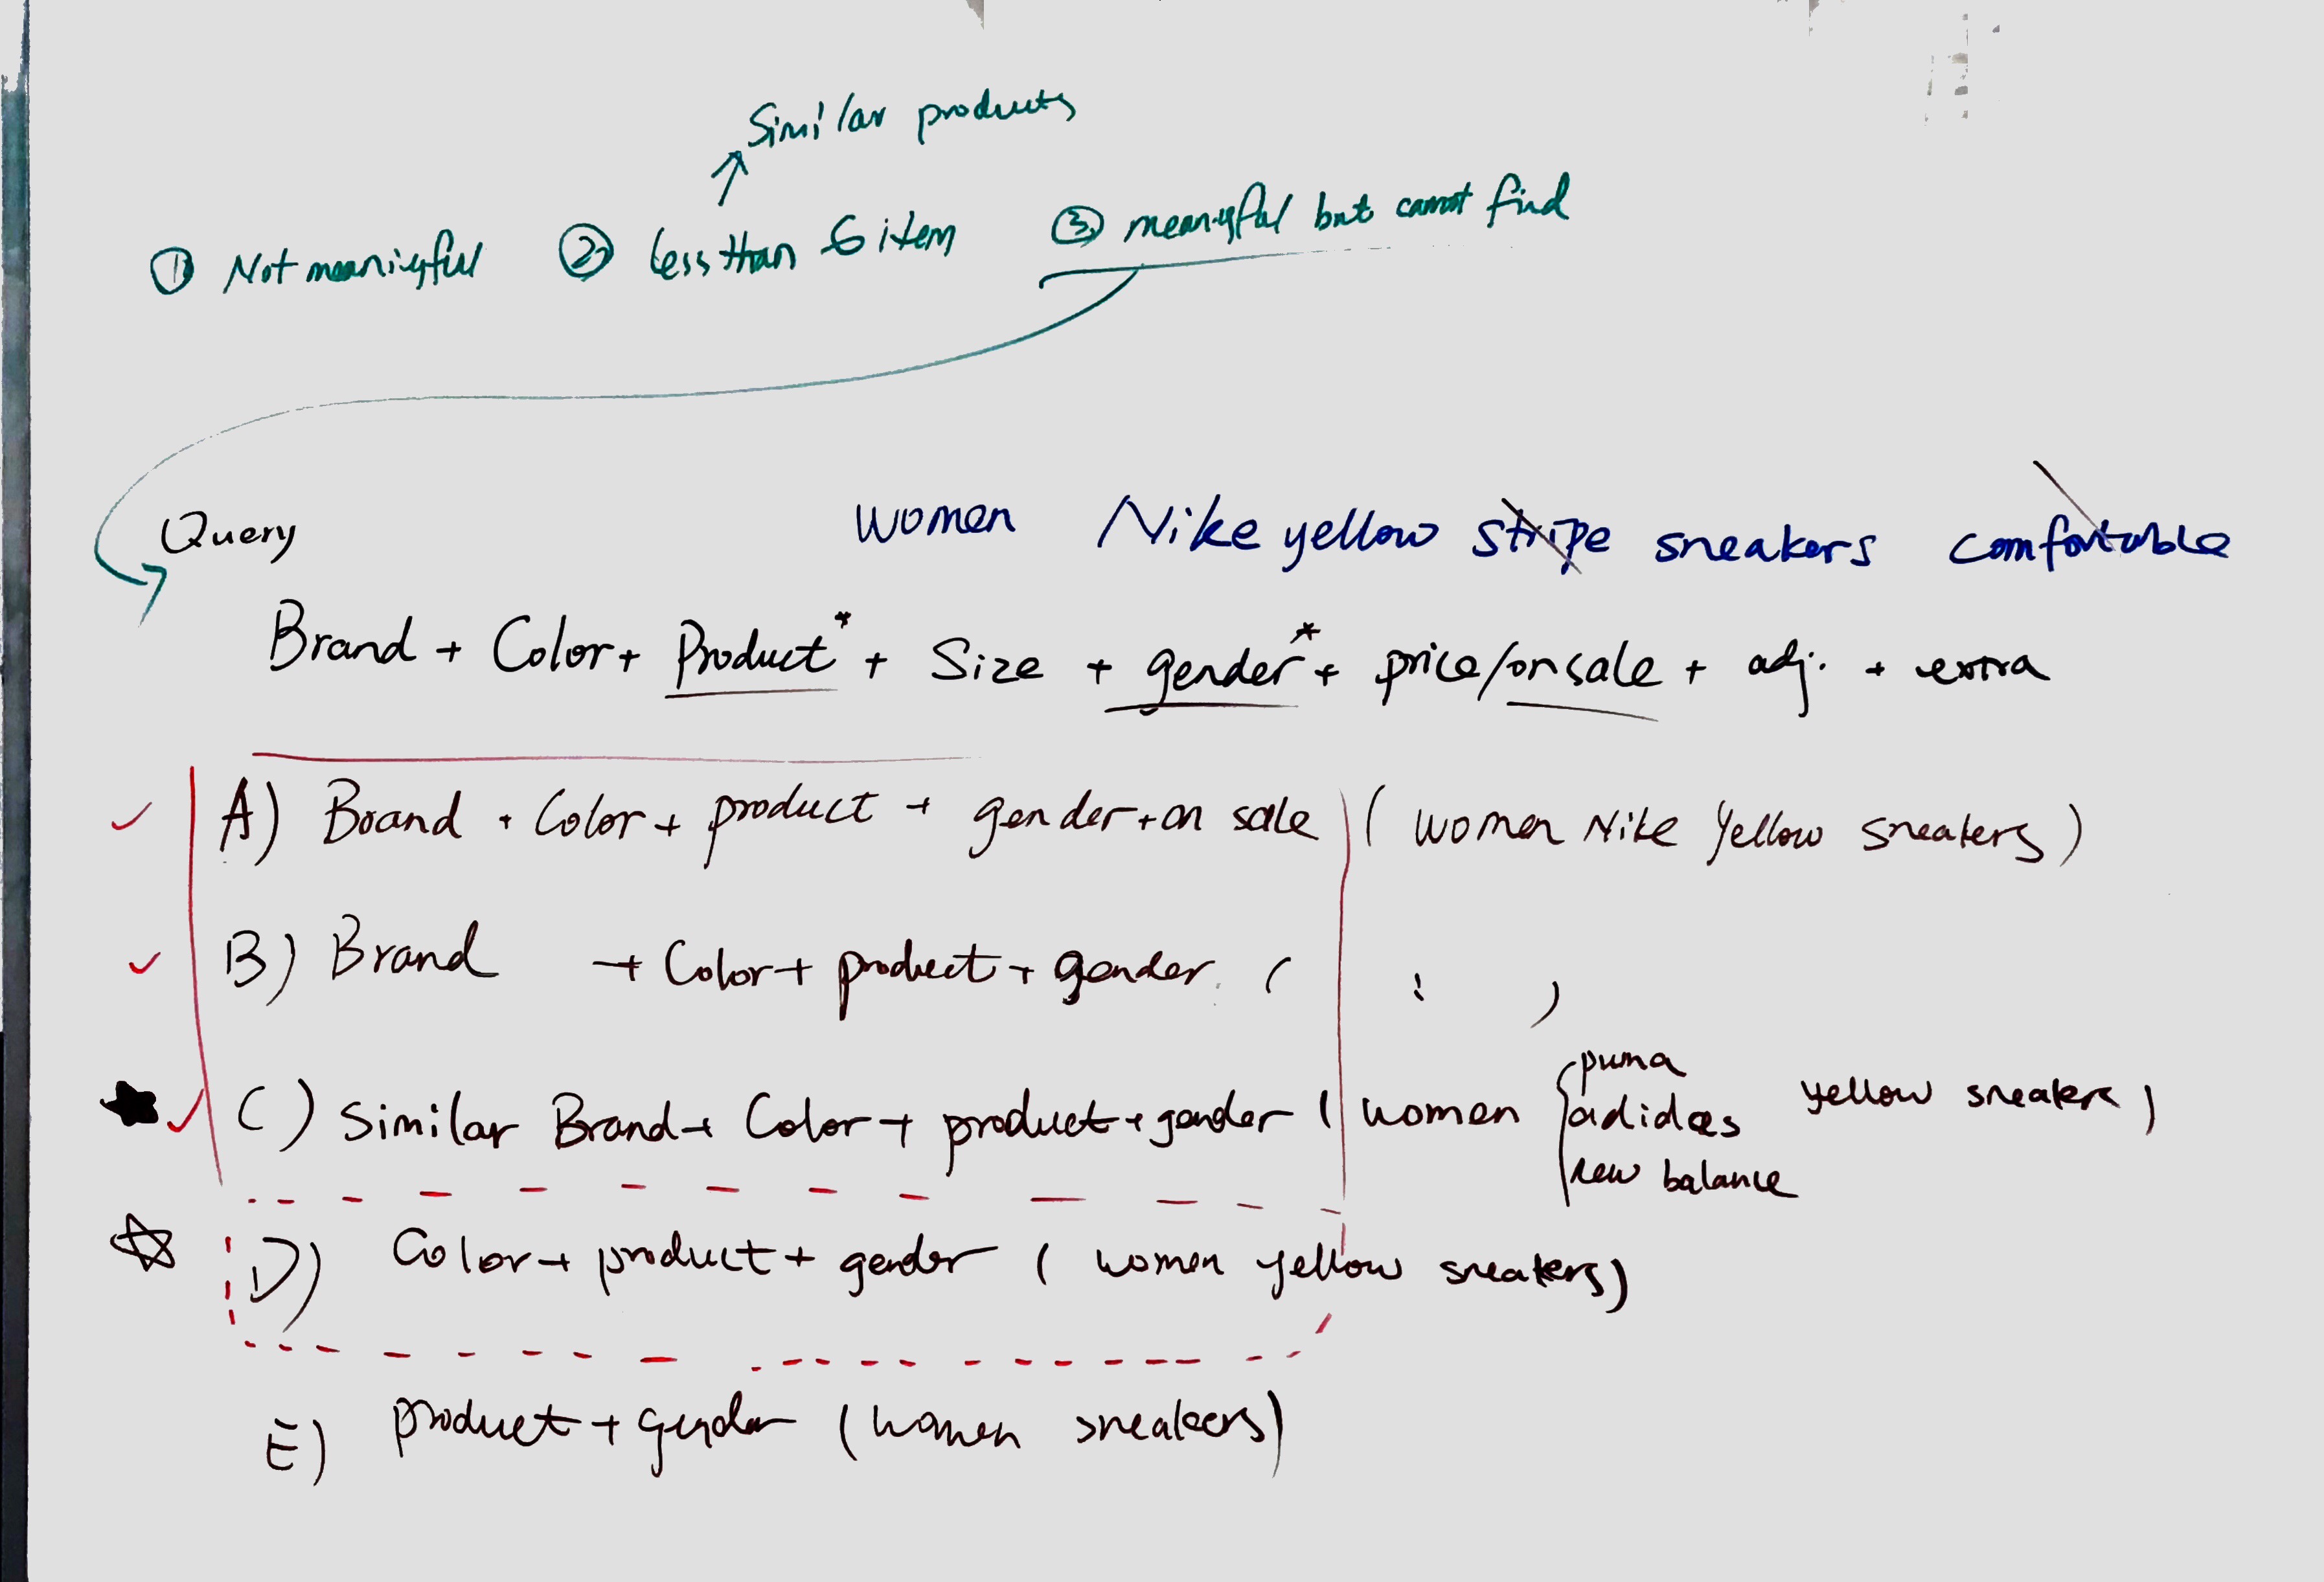 Similar products
① Not meaningful ② less than 6 item ③ meaningful but cannot find
Query
women Nike yellow stripe sneakers comfortable
Brand + Color + Product* + Size + gender* + price/on sale + adj. + extra
A) Brand + Color + product + gender + on sale ( women Nike Yellow sneakers )
B) Brand + Color + product + gender ( : )
C) Similar Brand + Color + product + gender ( women { puma adidas new balance yellow sneakers )
D) Color + product + gender ( women yellow sneakers )
E) product + gender ( women sneakers )